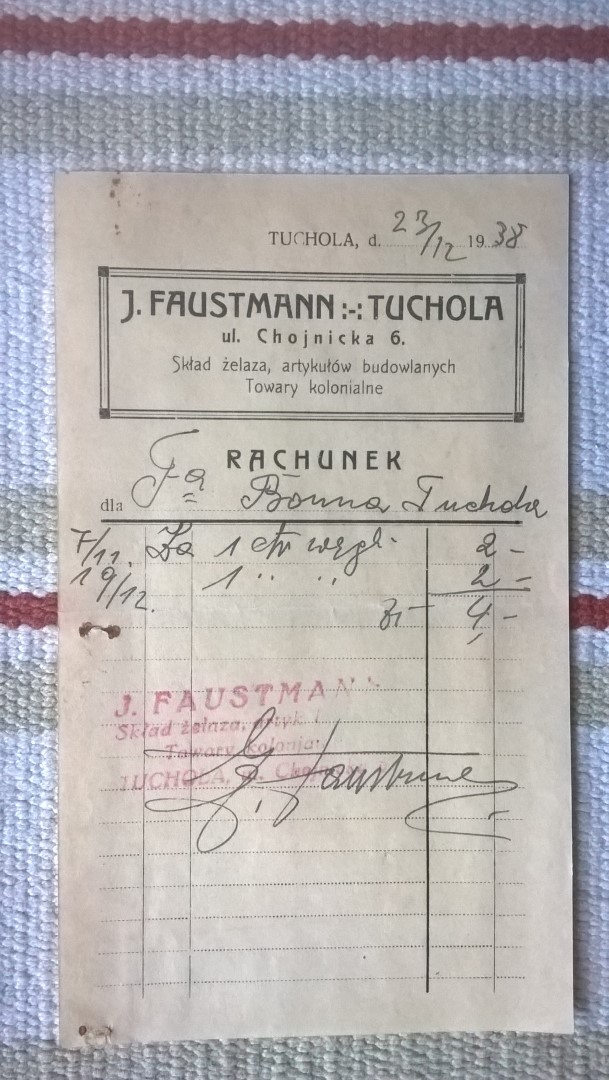 TUCHOLA, d. 23/12 1938
J. FAUSTMANN :-: TUCHOLA
ul. Chojnicka 6.
Skład żelaza, artykułów budowlanych
Towary kolonialne
RACHUNEK
dla Fa Bonna Tuchola
7/11. Za 1 ctr węgl. 2 -
19/12. 1 " " 2 -
Zł 4 -
J. FAUSTMAN
Skład żelaza, artyk
Towary kolonja
TUCHOLA, Chojn
J. Faustmann